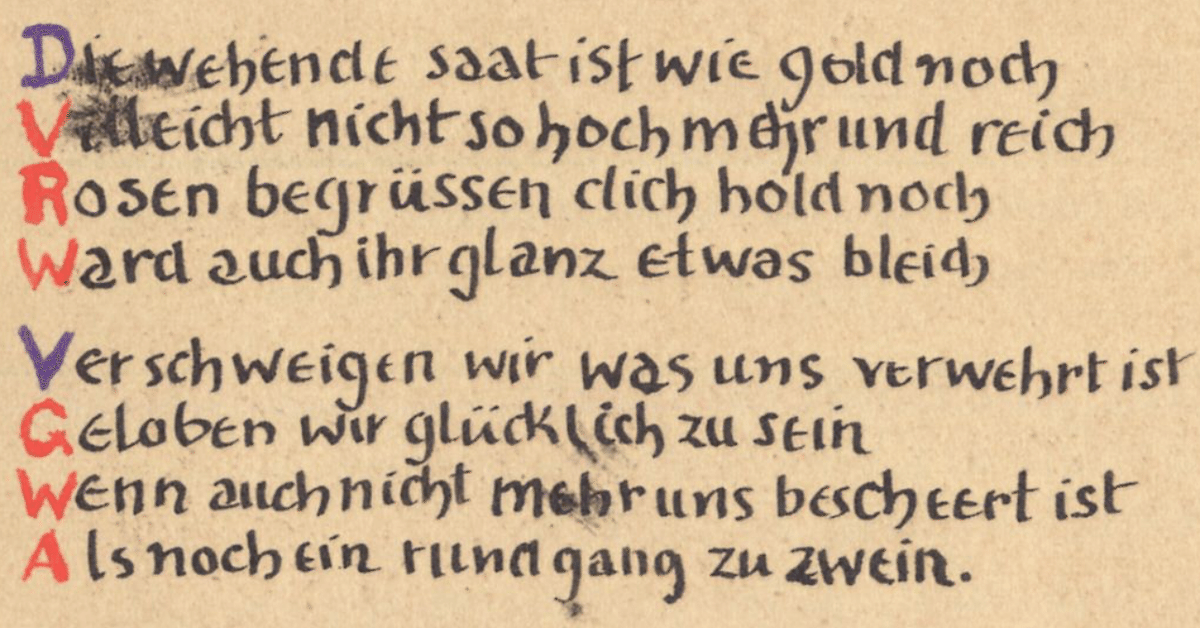 Die wehende saat ist wie gold noch
Villeicht nicht so hoch mehr und reich
Rosen begrüssen dich hold noch
Ward auch ihr glanz etwas bleich
Verschweigen wir was uns verwehrt ist
Geloben wir glücklich zu sein
Wenn auch nicht mehr uns bescheert ist
Als noch ein rundgang zu zwein.